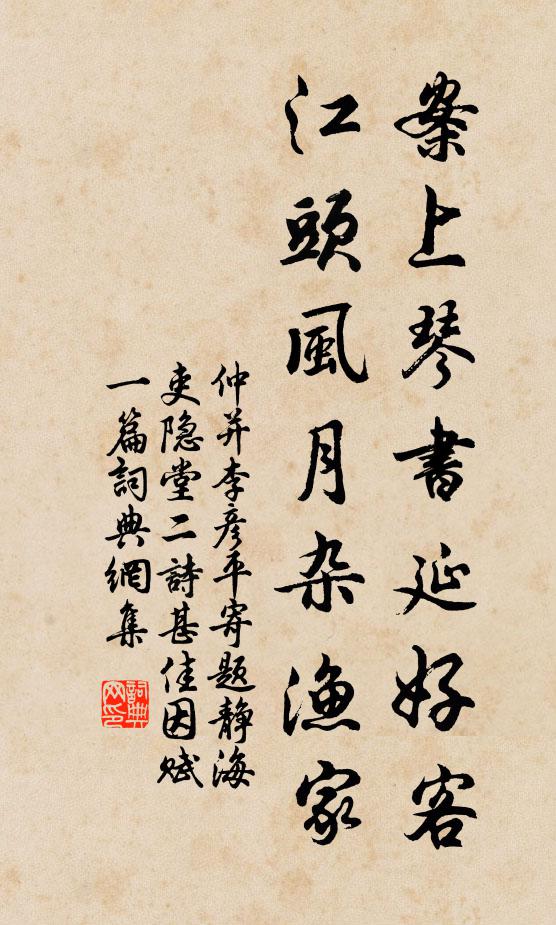 案上琴書延好客
江頭風月杂漁家
仲并李彦平寄题静海
吏隐堂二詩甚佳因赋
一篇詞典網集
詞典
网印